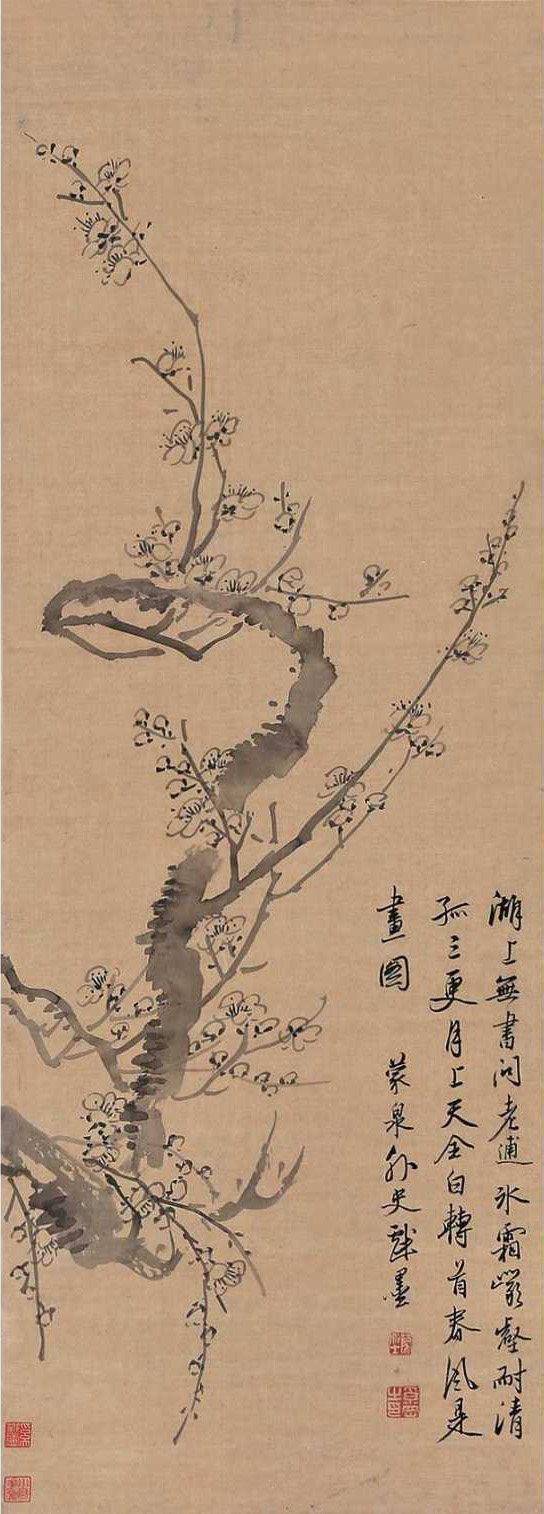 湖上無書問老逋氷霜巖壑耐清
孤三更月上天全白轉首春風是
畫圖
蒙泉外史戲墨